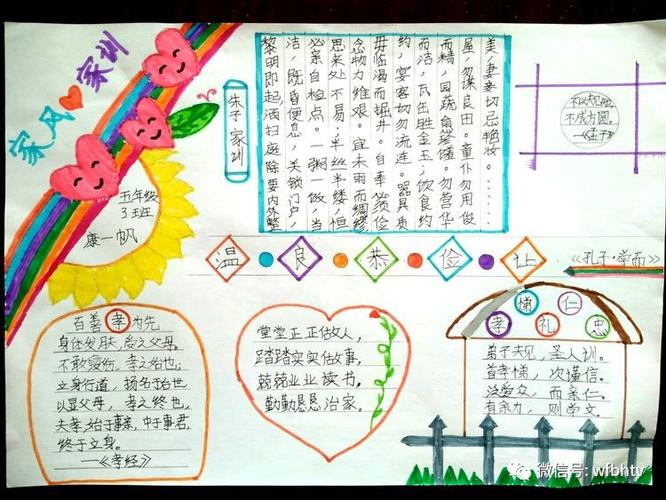 家风家训
五年级
3班
康一帆
朱子家训
黎明即起洒扫庭除要内外整
洁，既昏便息 关锁门户，
必亲自检点。一粥一饭，当
思来处不易；半丝半缕恒
念物力维艰。宜未雨而绸缪
毋临渴而掘井。自奉必须俭
约，宴客切勿流连。器具质
而洁，瓦缶胜金玉；饮食约
而精，园蔬愈珍馐。勿营华
屋，勿谋良田。童仆勿用俊
美，妻妾切忌艳妆。……
不以规矩，
不成方圆。
—《孟子》
温良恭俭让
《孔子·学而》
百善孝为先
身体发肤，受之父母。
不敢毁伤，孝之始也。
立身行道，扬名于后世
以显父母，孝之终也。
夫孝，始于事亲，中于事君，
终于立身。
—《孝经》
堂堂正正做人，
踏踏实实做事，
兢兢业业读书，
勤勤恳恳治家。
孝悌礼仁忠
弟子规，圣人训。
首孝悌，次谨信。
泛爱众，而亲仁。
有余力，则学文。
微信号: wfbhtv